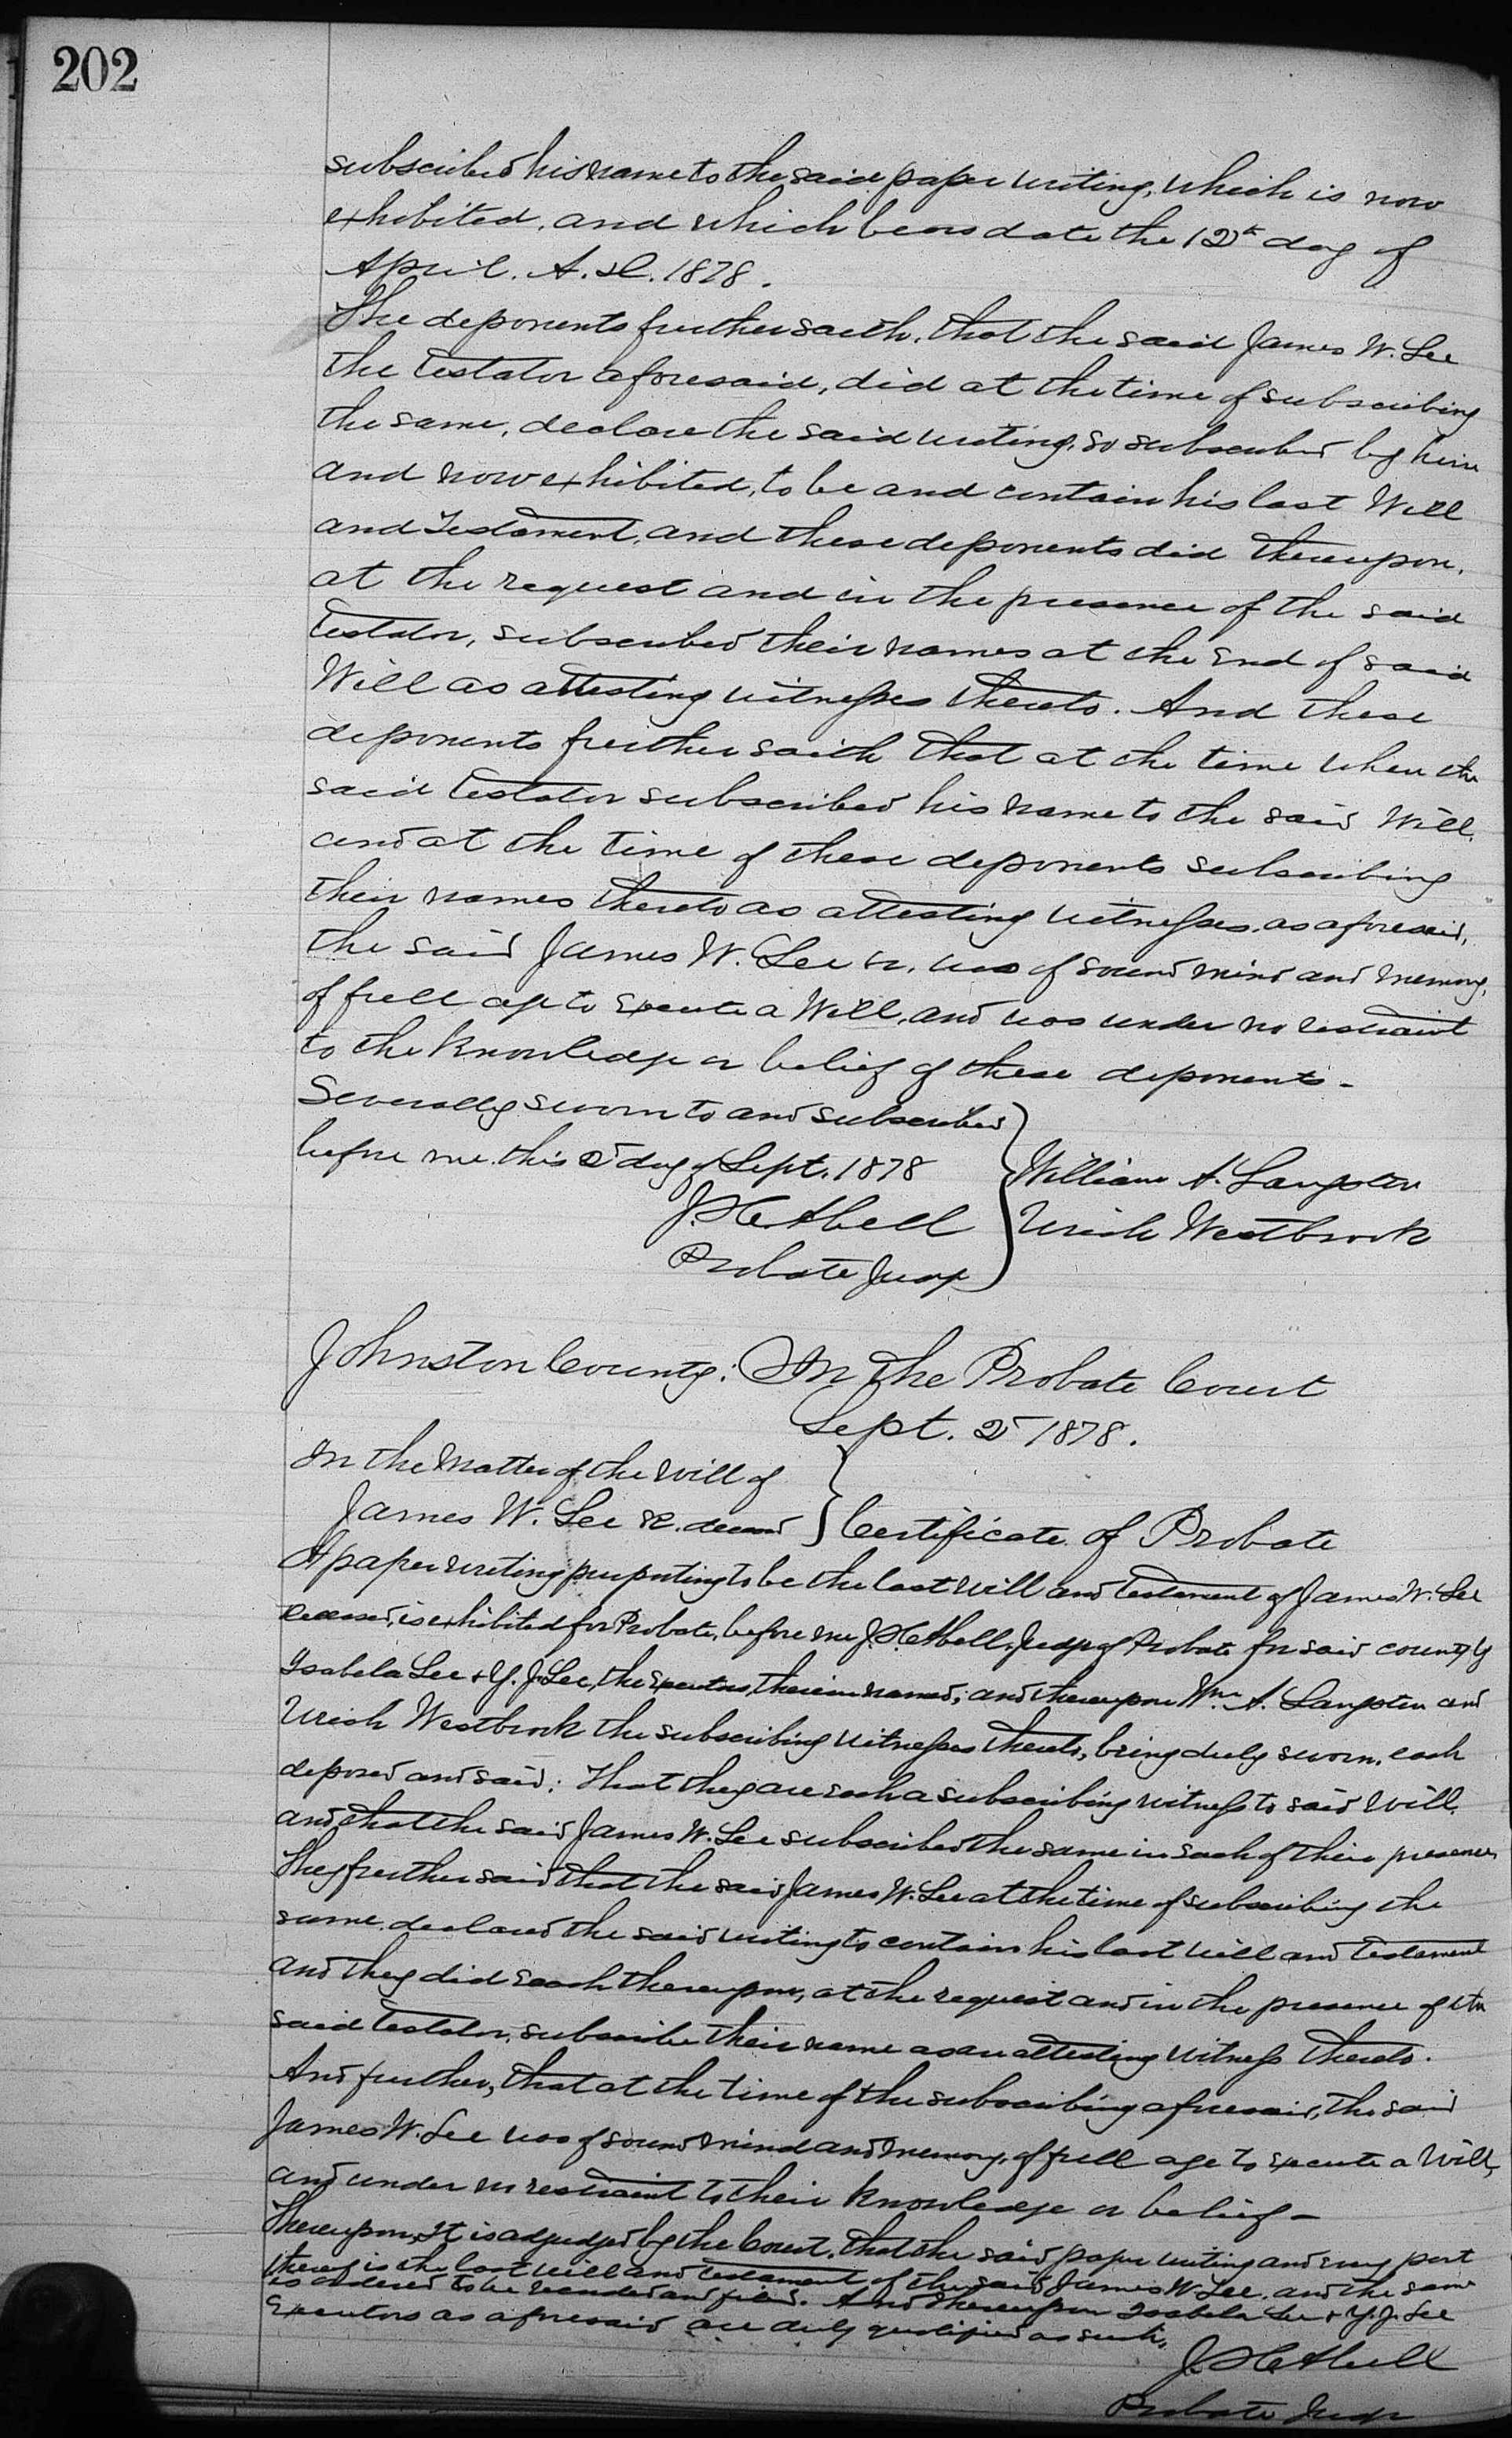 202
subscribed his name to the said paper writing, which is now
exhibited, and which bears date the 12th day of
April. A. D. 1878.
The deponents further saith, that the said James W. Lee
the testator aforesaid, did at the time of subscribing
the same, declare the said writing, so subscribed by him
and now exhibited, to be and contain his last Will
and Testament, and these deponents did thereupon,
at the request and in the presence of the said
testator, subscribed their names at the End of said
Will as attesting witnesses thereto. And these
deponents further saith that at the time when the
said testator subscribed his name to the said Will,
and at the time of these deponents subscribing
their names thereto as attesting witnesses, as aforesaid,
the said James W. Lee Sr. was of sound mind and memory,
of full age to Execute a Will, and was under no restraint
to the knowledge or belief of these deponents -
Severally sworn to and subscribed
before me this 2d day of Sept. 1878
William A. Langston
Uriah Westbrook
Probate Judge
Johnston County: In the Probate Court
Sept. 2d 1878.
In the Matter of the Will of
James W. Lee Sr. decased
Certificate of Probate
A paper writing purporting to be the last Will and Testament of James W. Lee
deceased, is exhibited for Probate, before me Judge of Probate for said county by
Isabela Lee & Y. J. Lee, the Executors, therein named; and thereupon Wm. A. Langston and
Uriah Westbrook the subscribing witnesses thereto, being duly sworn, each
deposed and said: That they are each a subscribing witness to said Will,
and that the said James W. Lee subscribed the same in each of their presence,
They further said that the said James W. Lee at the time of subscribing the
same, declared the said writing to contain his last Will and Testament
and they did each thereupon, at the request and in the presence of the
said testator, subscribe their name as an attesting witness thereto.
And further, that at the time of the subscribing aforesaid, the said
James W. Lee was of sound mind and memory, of full age to Execute a Will,
and under no restraint to their knowledge or belief -
Thereupon, It is adjudged by the Court, that the said paper writing and every part
thereof is the last Will and Testament of the said James W. Lee, and the same
is ordered to be recorded and filed. And thereupon Isabela Lee & Y. J. Lee
Executors as aforesaid are duly qualified as such,
Probate Judge